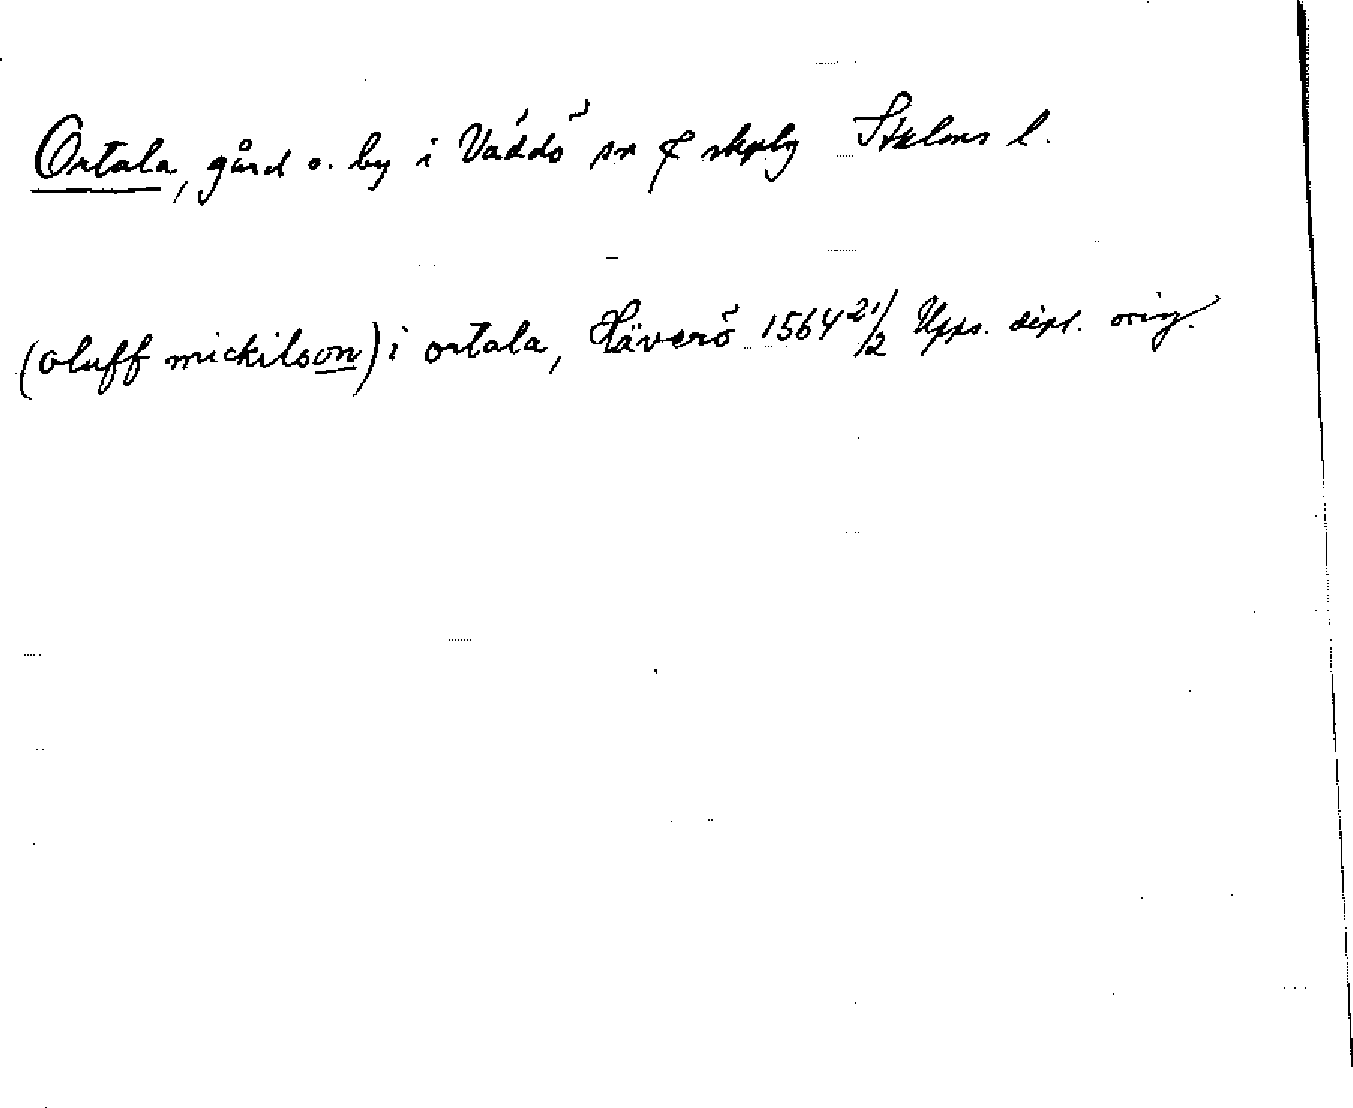 Ortala, gård o. by i Väddö sn & skplg Sthlms l.
(oluff mickilson) i ortala, Häverö 1564 21/2 Upps. dipl. orig.